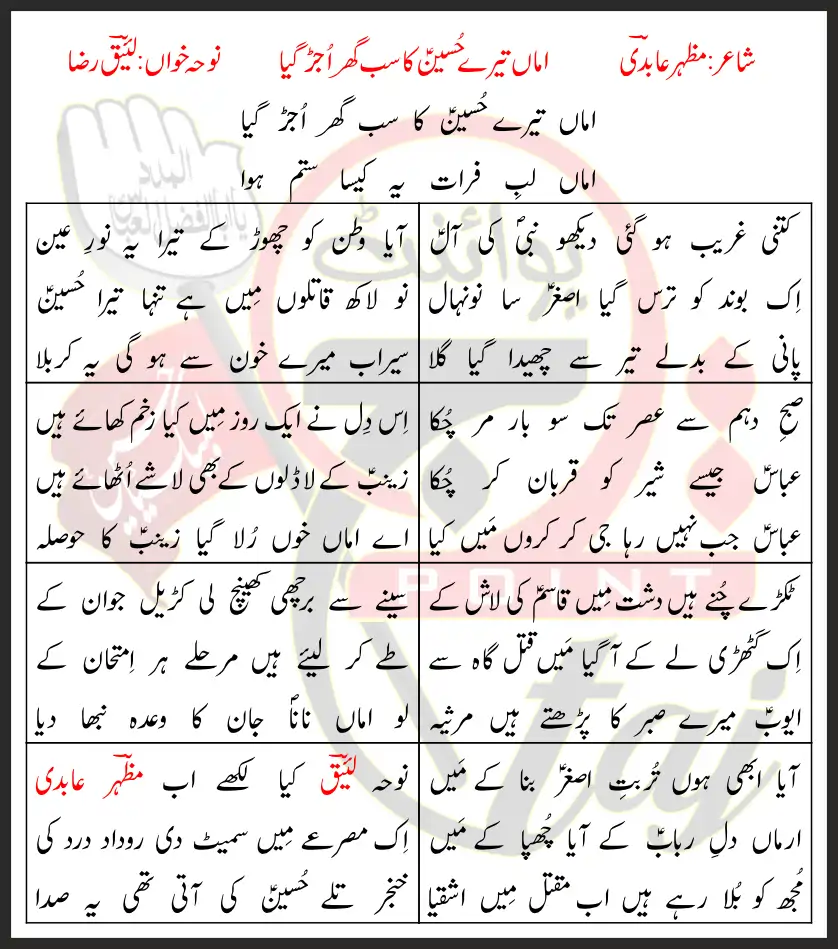 شاعر: مظہر عابدیؔ اماں تیرے حُسینؑ کا سب گھر اُجڑ گیا نوحہ خواں: لئیقؔ رضا
اماں تیرے حُسینؑ کا سب گھر اُجڑ گیا
اماں لبِ فرات یہ کیسا ستم ہوا
کتنی غریب ہو گئی دیکھو نبیؐ کی آلؑ
اِک بوند کو ترس گیا اصغرؑ سا نونہال
پانی کے بدلے تیر سے چھیدا گیا گلا
آیا وطن کو چھوڑ کے تیرا یہ نورِ عین
نو لاکھ قاتلوں مِیں ہے تنہا تیرا حُسینؑ
سیراب میرے خون سے ہو گی یہ کربلا
صبحِ دہم سے عصر تک سو بار مر چُکا
عباسؑ جیسے شیر کو قربان کر چُکا
عباسؑ جب نہیں رہا جی کر کروں مَیں کیا
اِس دِل نے ایک روز مِیں کیا زخم کھائے ہیں
زینبؑ کے لاڈلوں کے بھی لاشے اُٹھائے ہیں
اے اماں خوں رُلا گیا زینبؑ کا حوصلہ
ٹکڑے چُنے ہیں دشت مِیں قاسمؑ کی لاش کے
اِک گٹھڑی لے کے آ گیا مَیں قتل گاہ سے
ایوبؑ میرے صبر کا پڑھتے ہیں مرثیہ
سینے سے برچھی کھینچ لی کڑیل جوان کے
طے کر لیئے ہیں مرحلے ہر اِمتحان کے
لو اماں ناناؐ جان کا وعدہ نبھا دیا
آیا ابھی ہوں تُربتِ اصغرؑ بنا کے مَیں
ارماں دلِ ربابؑ کے آیا چُھپا کے مَیں
مُجھ کو بُلا رہے ہیں اب مقتل مِیں اشقیا
نوحہ لئیقؔ کیا لکھے اب مظہرؔ عابدی
اِک مصرعے مِیں سمیٹ دی روداد درد کی
خنجر تلے حُسینؑ کی آتی تھی یہ صدا
پوائنٹ
POINT
taj